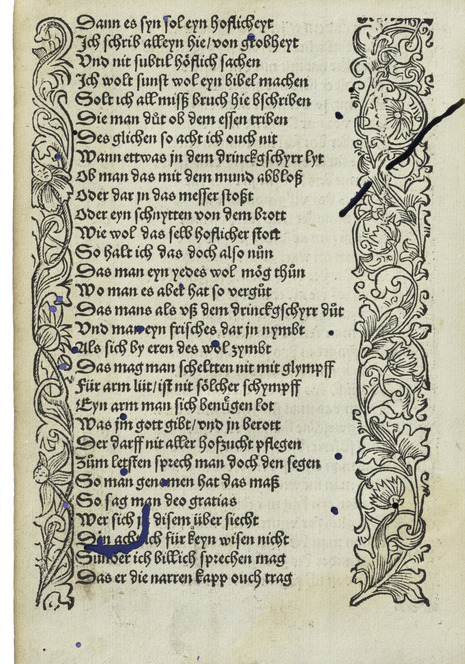 Dann es syn sol eyn hoflicheyt
Jch schrib alleyn hie/von grobheyt
Vnd nit subtil höflich sachen
Jch wolt sunst wol eyn bibel machen
Solt ich all miſß bruch hie bschriben
Die man düt ob dem essen triben
Des glichen so acht ich ouch nit
Wann ettwas jn dem drinckgschyrr lyt
Ob man das mit dem mund abbloß
Oder dar jn das messer stoßt
Oder eyn schnytten von dem brott
Wie wol das selb hoflicher stott
So halt ich das doch also nün
Das man eyn yedes wol mög thün
Wo man es aber hat so vergüt
Das mans als vß dem drinckgschyrr düt
Vnd man eyn frisches dar jn nymbt
Als sich by eren des wol zymbt
Das mag man scheltten nit mit glympff
Für arm lüt/ist nit sölcher schympff
Eyn arm man sich benügen lot
Was jm gott gibt/vnd jn berott
Der darff nit aller hofzucht pflegen
Züm letsten sprech man doch den segen
So man genomen hat das maß
So sag man deo gratias
Wer sich jn disem über siecht
Den acht ich für keyn wisen nicht
Sunder ich billich sprechen mag
Das er die narren kapp ouch trag